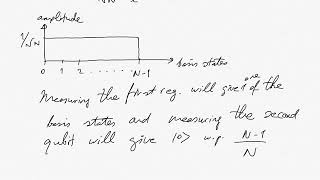 amplitude
1/√N
0 1 2 ...... N-1 basis states
Measuring the first reg. will give one of the
basis states and measuring the second
qubit will give |0> w.p. N-1/N